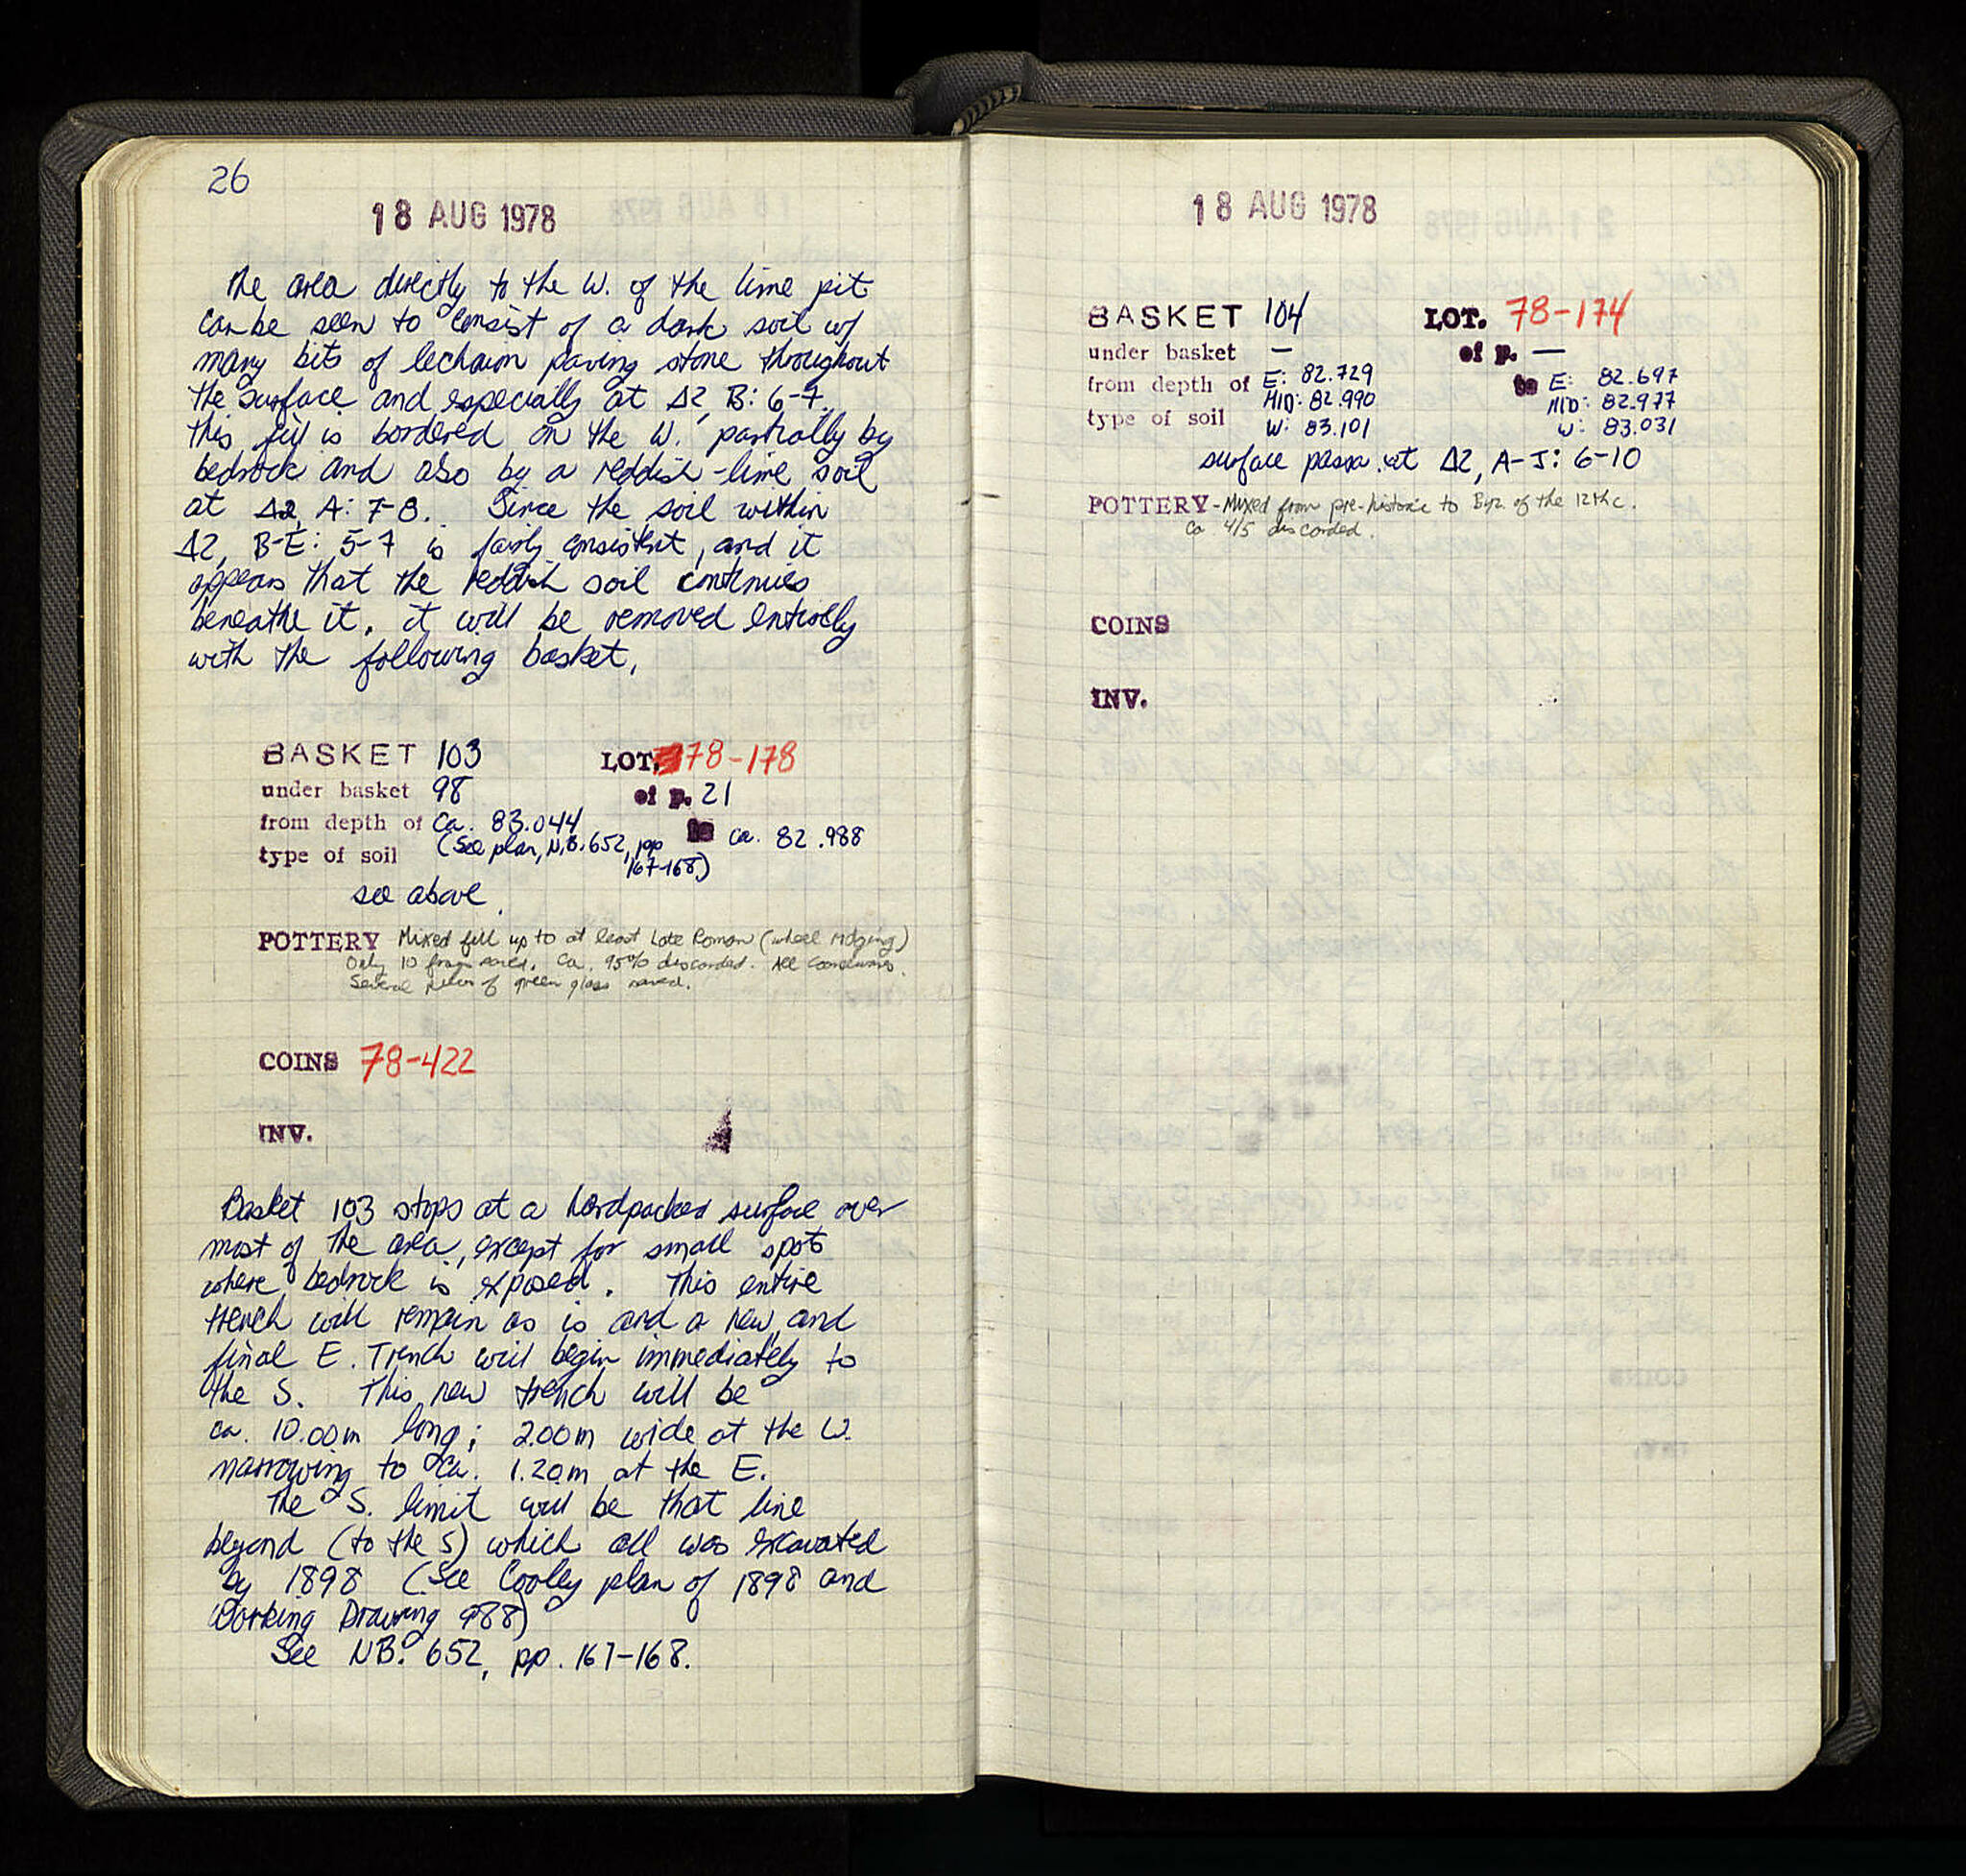 26
18 AUG 1978
The area directly to the W. of the lime pit
can be seen to consist of a dark soil w/
many bits of lechaion paving stone throughout
the surface and especially at Δ2, B: 6-7.
This fill is bordered on the W. partially by
bedrock and also by a reddish-lime soil
at Δ2, A: 7-8. Since the soil within
Δ2, B-E: 5-7 is fairly consistent, and it
appears that the reddish soil continues
beneathe it, it will be removed entirelly
with the following basket.
BASKET 103 LOT. 78-178
under basket 98 of p. 21
from depth of ca. 83.044 to ca. 82.988
type of soil (See plan, N.B. 652, pp
167-168)
see above
POTTERY Mixed fill up to at least Late Roman (wheel ridging)
Only 10 frags saved. Ca. 95% discarded. All coarsewares.
Several pieces of green glass saved.
COINS 78-422
INV.
Basket 103 stops at a hardpacked surface over
most of the area, except for small spots
where bedrock is exposed. This entire
trench will remain as is and a new and
final E. Trench will begin immediately to
the S. This new trench will be
ca. 10.00m long; 2.00m wide at the W.
narrowing to ca. 1.20m at the E.
The S. limit will be that line
beyond (to the S) which all was excavated
by 1898 (See Cooley plan of 1898 and
Working Drawing 988)
See NB. 652, pp. 167-168.
18 AUG 1978
BASKET 104 LOT. 78-174
under basket — of p. —
from depth of E: 82.729 to E: 82.697
MID: 82.990 MID: 82.977
type of soil W: 83.101 W: 83.031
surface passa at Δ2, A-J: 6-10
POTTERY - Mixed from pre-historic to Byz. of the 12th c.
Ca 4/5 discarded.
COINS
INV.